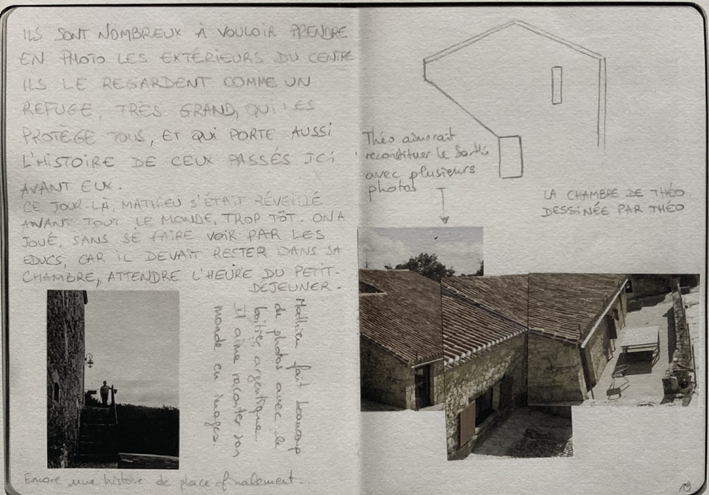 ILS SONT NOMBREUX À VOULOIR PRENDRE
EN PHOTO LES EXTÉRIEURS DU CENTRE
ILS LE REGARDENT COMME UN
REFUGE, TRÈS GRAND, QUI LES
PROTÈGE TOUS, ET QUI PORTE AUSSI
L'HISTOIRE DE CEUX PASSÉS ICI
AVANT EUX.
CE JOUR-LÀ, MATHIEU S'ÉTAIT RÉVEILLÉ
AVANT TOUT LE MONDE, TROP TÔT. ON A
JOUÉ, SANS SE FAIRE VOIR PAR LES
EDUCS, CAR IL DEVAIT RESTER DANS SA
CHAMBRE, ATTENDRE L'HEURE DU PETIT-
DÉJEUNER.
Mathieu fait beaucoup
de photos avec le
boîtier argentique.
il aime raconter son
monde en images.
Encore une histoire de place finalement.
Théo aimerait
reconstituer le
avec plusieurs
photos
LA CHAMBRE DE THÉO,
DESSINÉE PAR THÉO